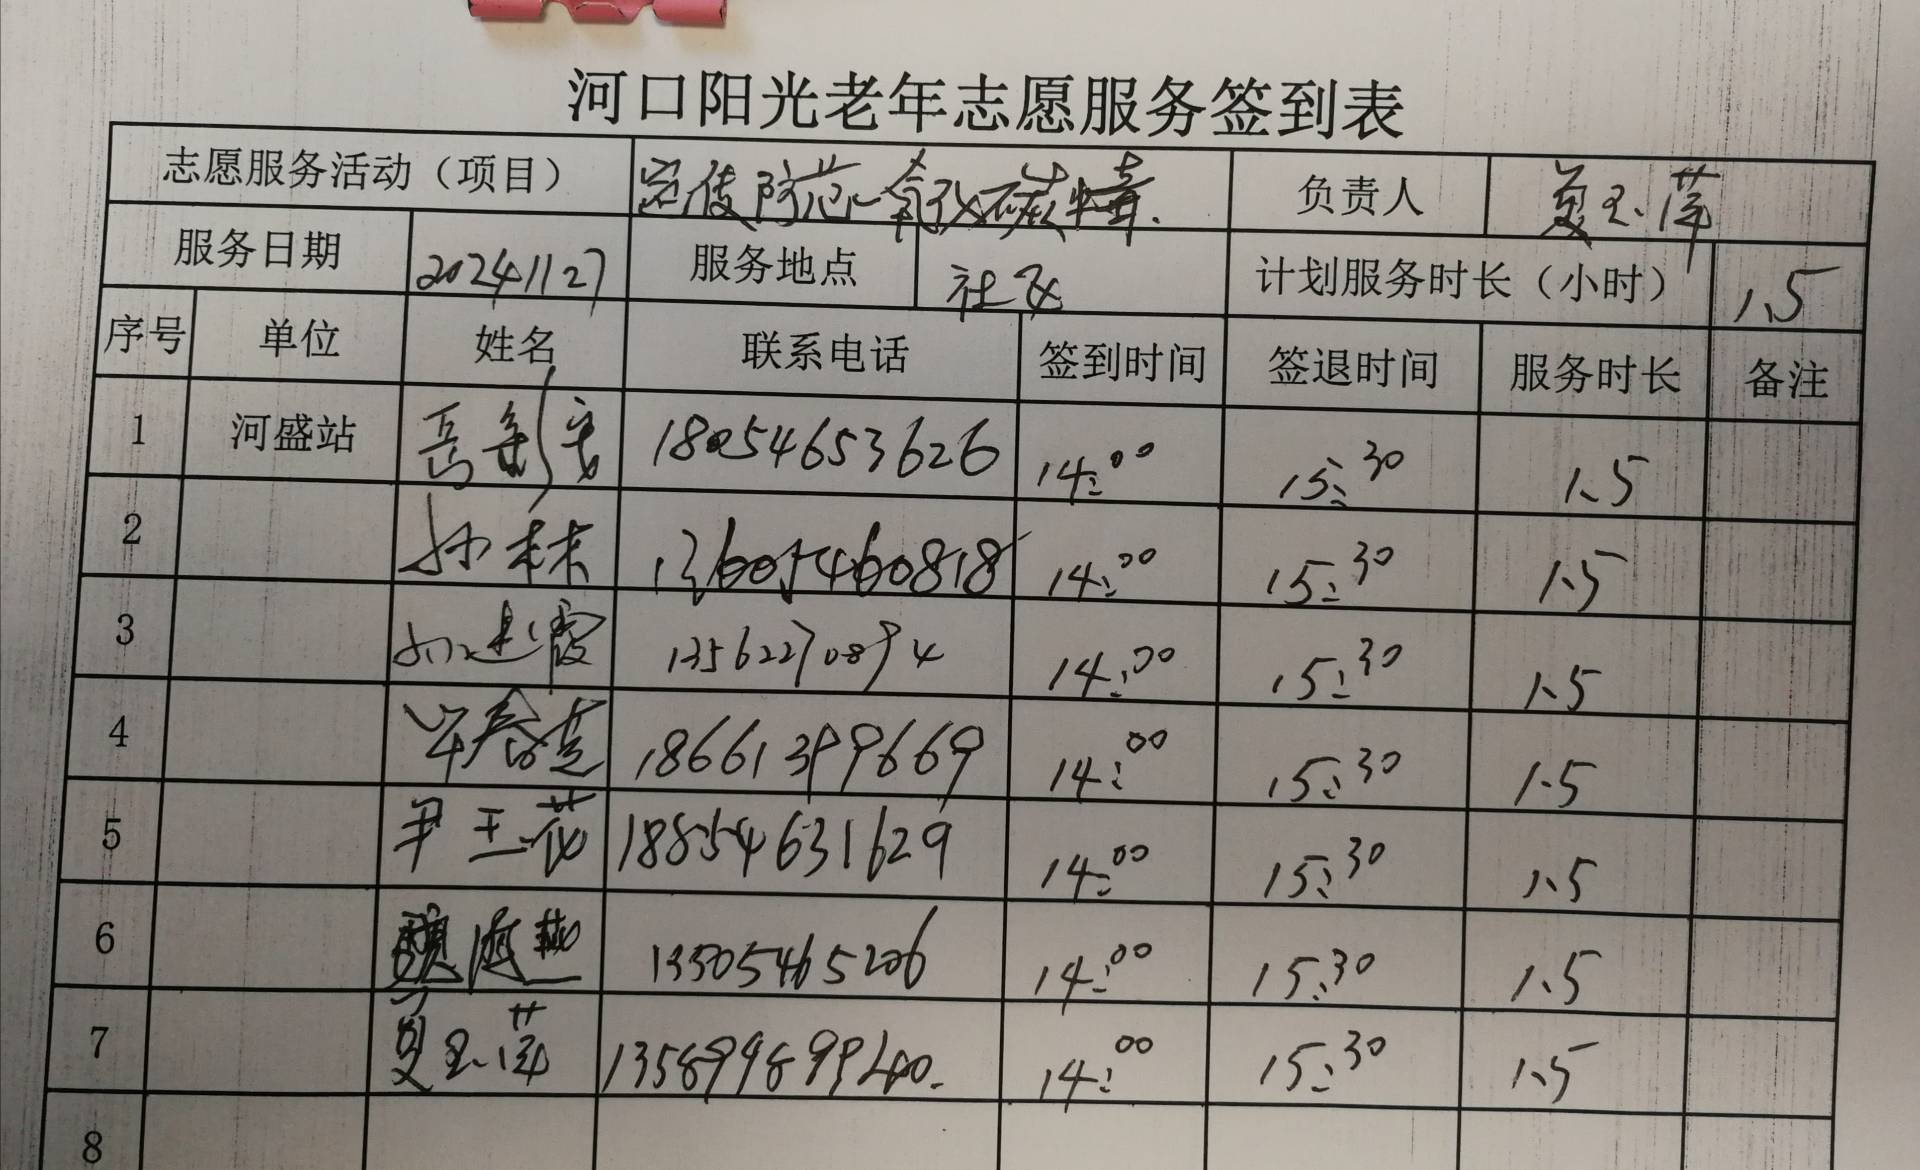 河口阳光老年志愿服务签到表
志愿服务活动（项目） 宣传防范一氧化碳中毒. 负责人 夏玉萍
服务日期 20241127 服务地点 社区 计划服务时长（小时） 1.5
序号 单位 姓名 联系电话 签到时间 签退时间 服务时长 备注
1 河盛站 18054653626 14:00 15:30 1.5
2 孙林 13605460818 14:00 15:30 1.5
3 孙建霞 13562270894 14:00 15:30 1.5
4 18661399669 14:00 15:30 1.5
5 尹玉花 18854631629 14:00 15:30 1.5
6 魏海燕 13305465206 14:00 15:30 1.5
7 夏玉萍 14:00 15:30 1.5
8